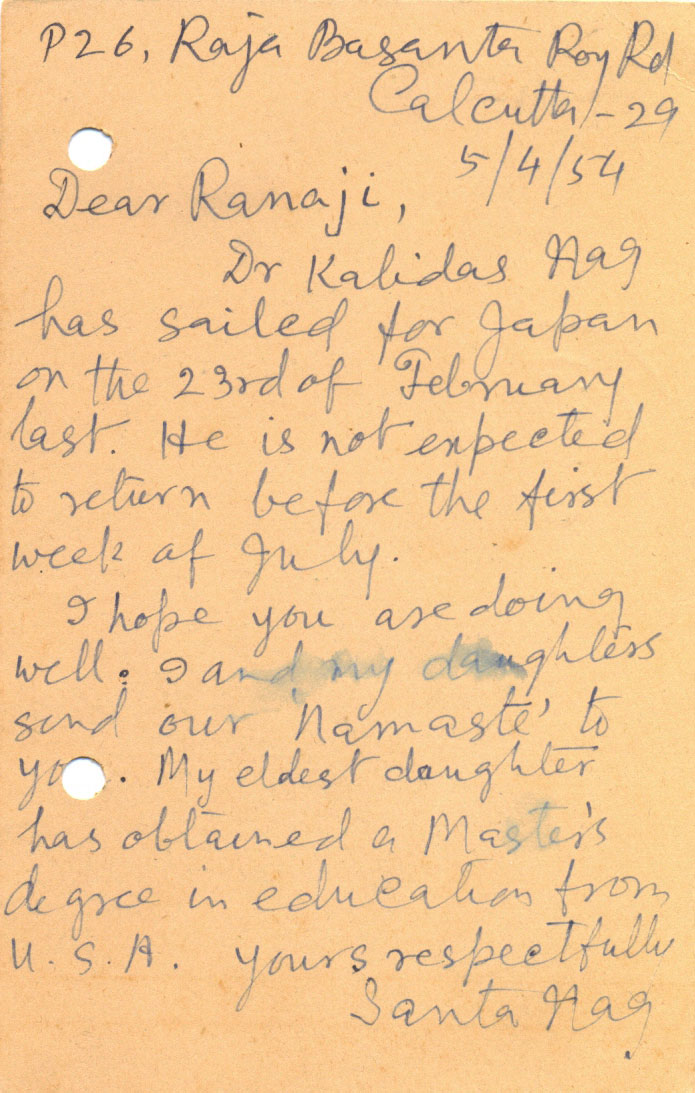 P26, Raja Basanta Roy Rd
Calcutta - 29
5/4/54
Dear Ranaji,
Dr Kalidas Nag
has sailed for Japan
on the 23rd of February
last. He is not expected
to return before the first
week of July.
I hope you are doing
well. I and my daughters
send our 'Namaste' to
yo . My eldest daughter
has obtained a Master's
degree in education from
U.S.A. yours respectfully
Santa Nag